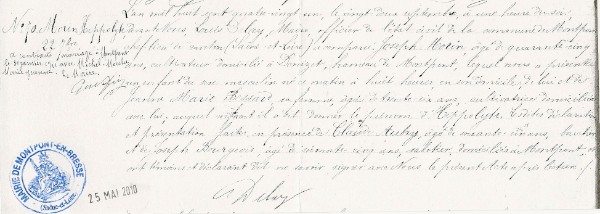 L'an mil huit cent quatre vingt un, le vingt deux septembre, à une heure du soir
N° 70 Morin Hippolyte
22 7bre
devant nous Louis Debry, Maire, officier de l'état civil de la commune de Montpont,
a contracté mariage à Montpont
département de Saône et Loire, a comparu Joseph Morin, âgé de quarante cinq
le
avec
ans, cultivateur domicilié à hameau de Montpont, lequel nous a présenté
Le Maire
un enfant du sexe masculin né ce matin à huit heures, en son domicile, de lui et de
Jeanne Marie sa femme, âgée de trente six ans, cultivatrice domiciliée
avec lui, auquel enfant il a dit donner le prénom d'Hippolyte. Cette déclaration
et présentation faite en présence de Claude Aubry, âgé de soixante ans,
et de Bourgeois, âgé de ans, domiciliés à Montpont,
et ont témoins et déclarant dit ne savoir signer avec nous le présent acte après lecture.
Debry
MAIRIE DE MONTPONT-EN-BRESSE
(Saône-et-Loire)
25 MAI 2010